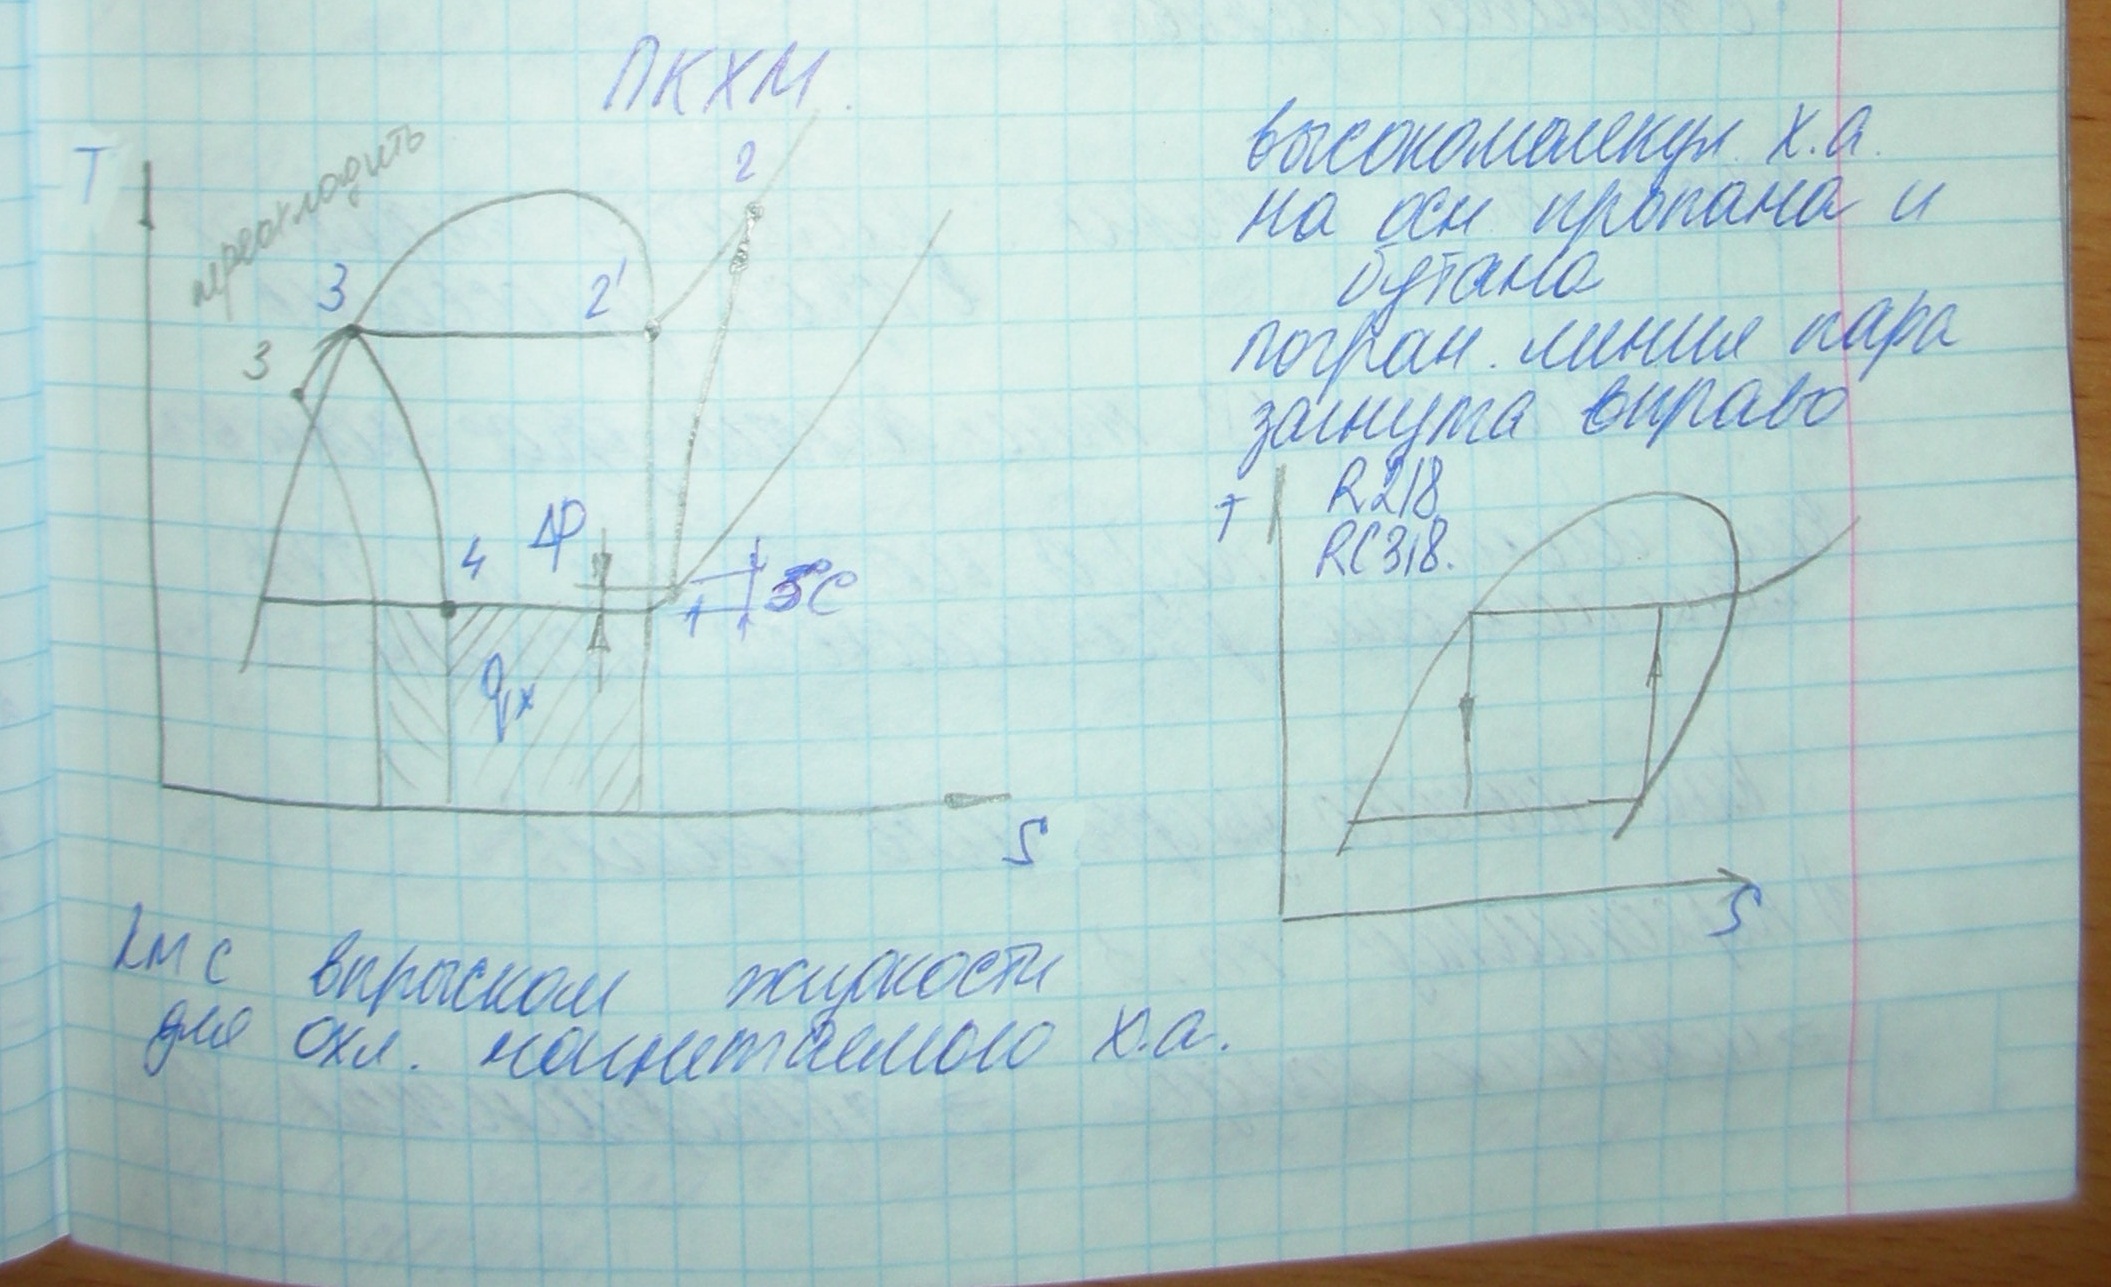 ПКХМ.
T
переохладить
2
3
2'
3
Δp
4
5°C
qх
S
высокомолекул. х.а.
на осн пропана и
бутана
погран. линия пара
загнута вправо
T
R218
RC318.
S
ХМ с впрыском жидкости
для охл. нагнетаемого х.а.